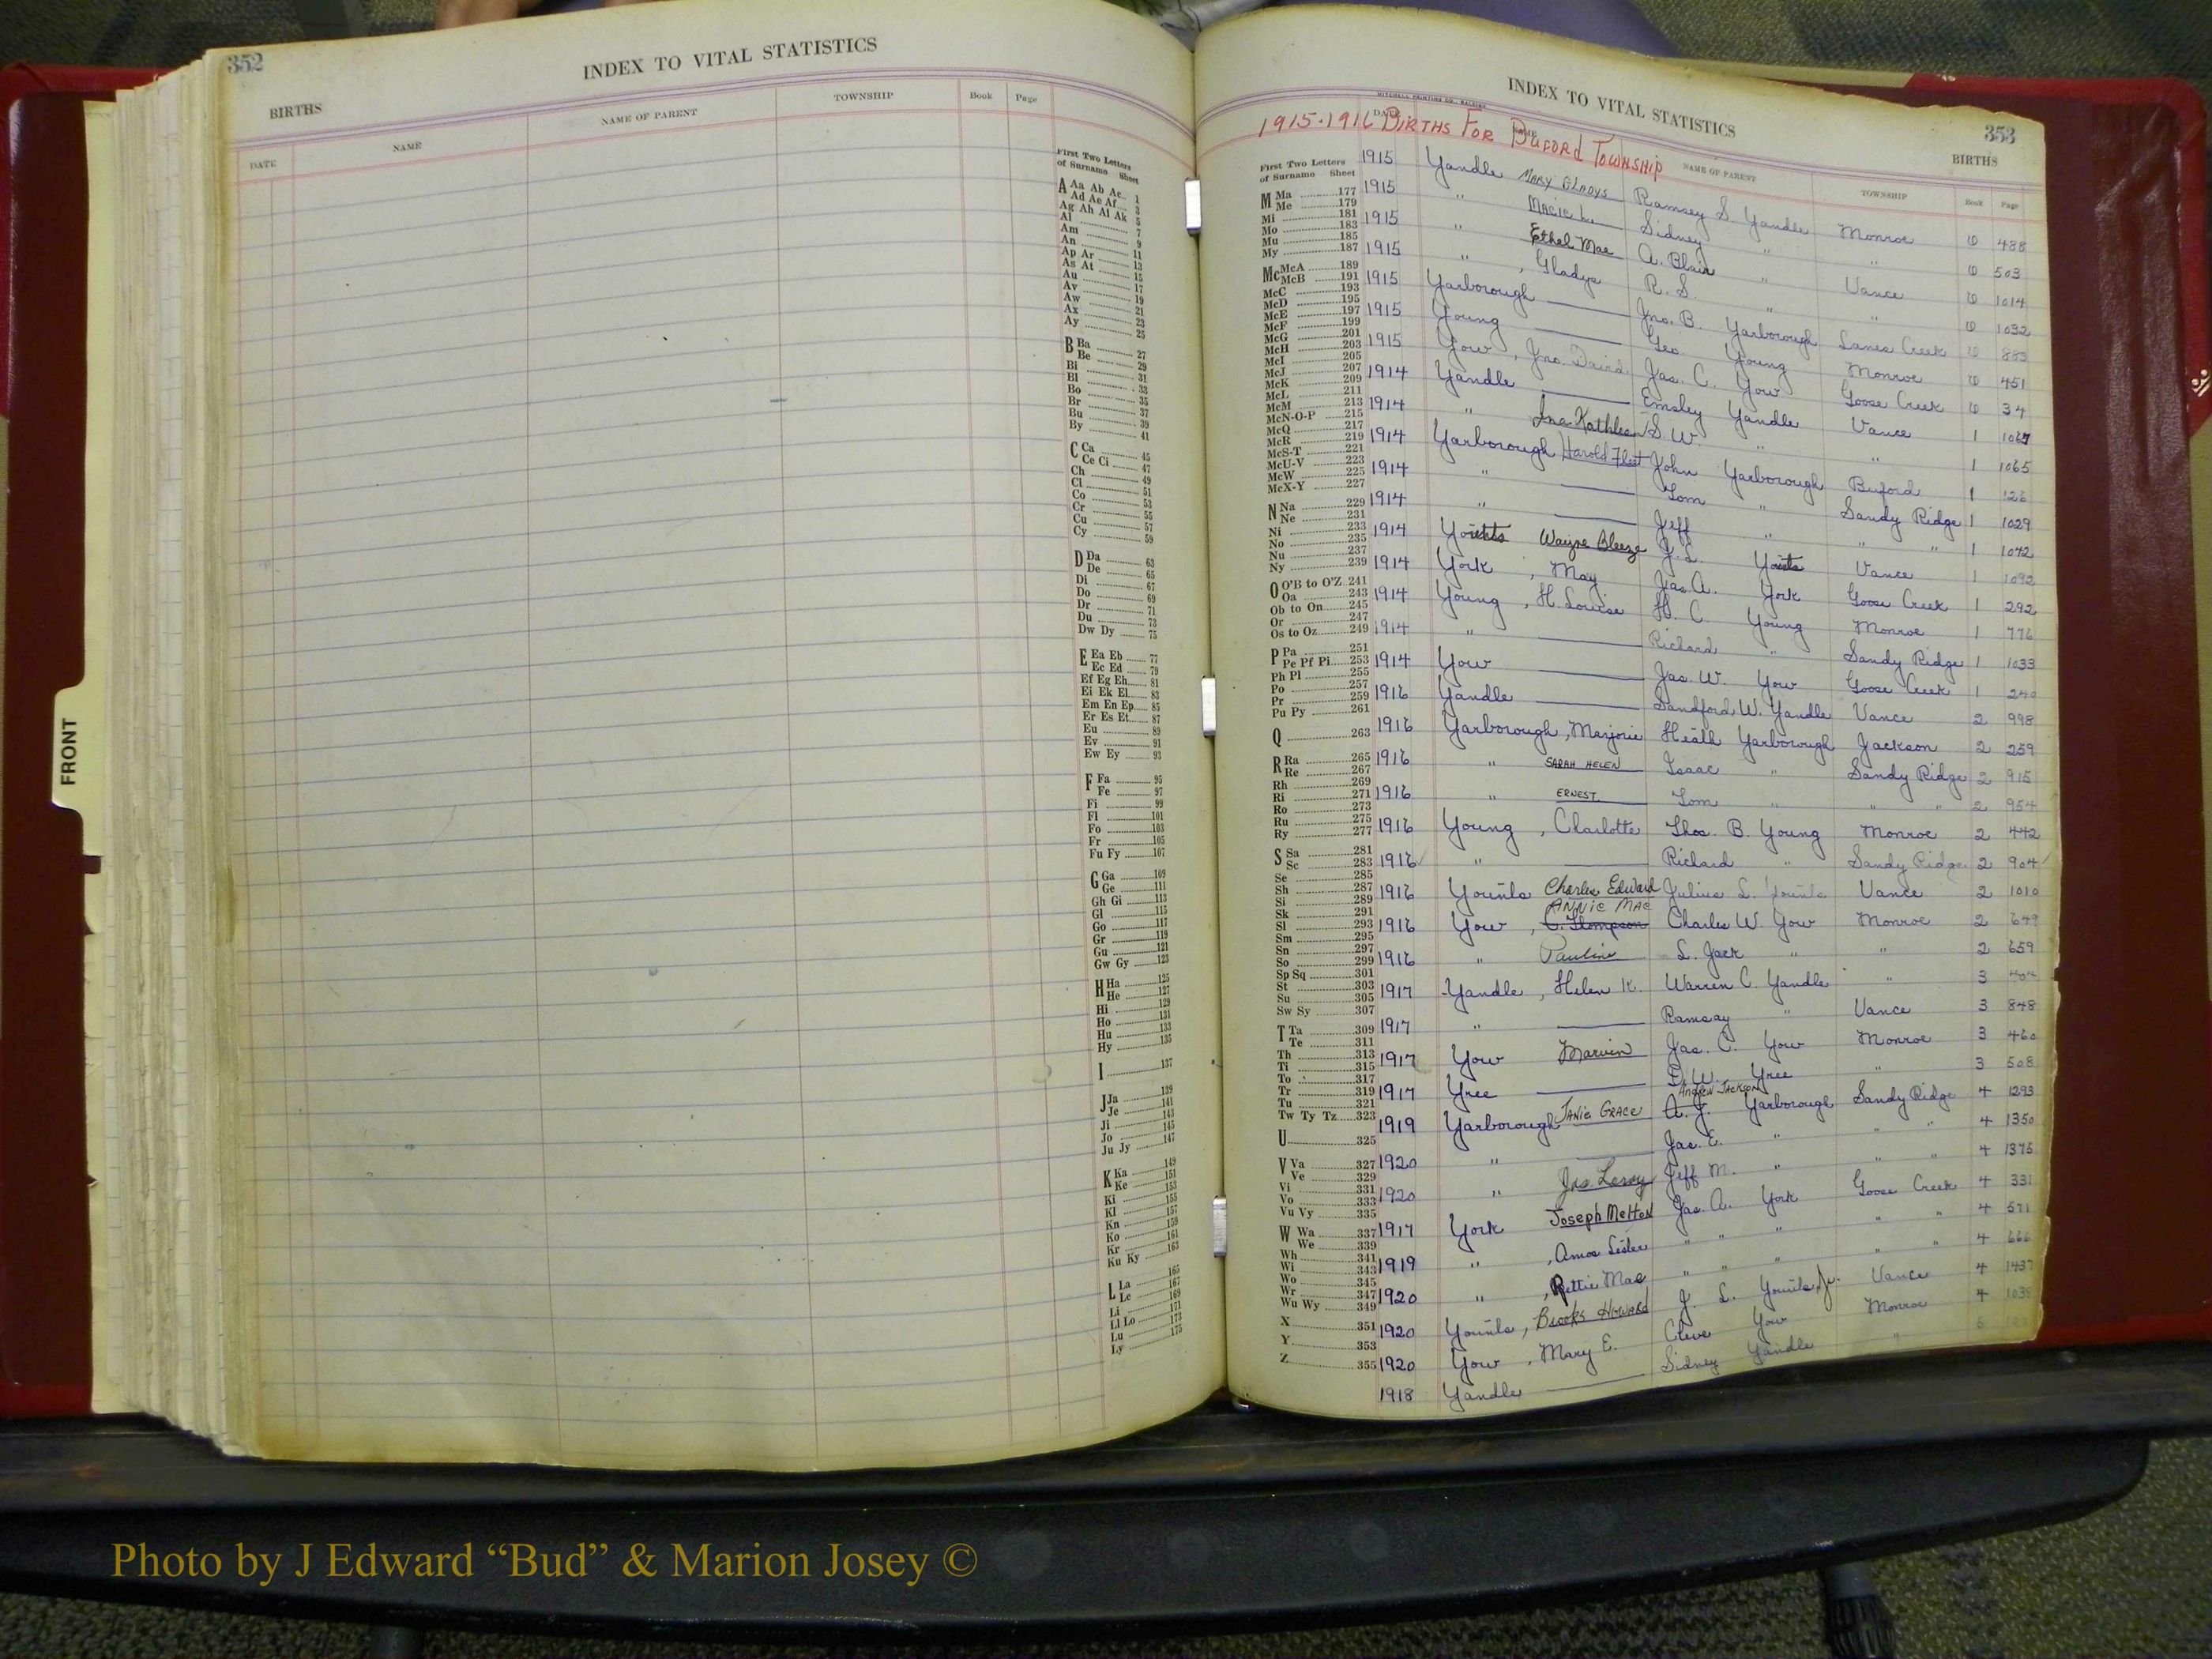 352
INDEX TO VITAL STATISTICS
BIRTHS
DATE NAME NAME OF PARENT TOWNSHIP Book Page
First Two Letters
of Surname Sheet
A Aa Ab Ac 1
Ad Ae Af 3
Ag Ah Ai Ak 5
Al 7
Am 9
An 11
Ap Ar 13
As At 15
Au 17
Av 19
Aw 21
Ax 23
Ay 25
B Ba 27
Be 29
Bi 31
Bl 33
Bo 35
Br 37
Bu 39
By 41
C Ca 45
Ce Ci 47
Ch 49
Cl 51
Co 53
Cr 55
Cu 57
Cy 59
D Da 63
De 65
Di 67
Do 69
Dr 71
Du 73
Dw Dy 75
E Ea Eb 77
Ec Ed 79
Ef Eg Eh 81
Ei Ek El 83
Em En Ep 85
Er Es Et 87
Eu 89
Ev 91
Ew Ey 93
F Fa 95
Fe 97
Fi 99
Fl 101
Fo 103
Fr 105
Fu Fy 107
G Ga 109
Ge 111
Gh Gi 113
Gl 115
Go 117
Gr 119
Gu 121
Gw Gy 123
H Ha 125
He 127
Hi 129
Ho 131
Hu 133
Hy 135
I 137
J Ja 139
Je 141
Ji 143
Jo 145
Ju Jy 147
K Ka 149
Ke 151
Ki 153
Kl 155
Kn 157
Ko 159
Kr 161
Ku Ky 163
L La 165
Le 167
Li 169
Ll Lo 171
Lu 173
Ly 175
FRONT
INDEX TO VITAL STATISTICS
353
MITCHELL PRINTING CO., RALEIGH
1915-1916 BIRTHS FOR BUFORD TOWNSHIP
BIRTHS
DATE NAME NAME OF PARENT TOWNSHIP Book Page
First Two Letters
of Surname Sheet
M Ma 177
Me 179
Mi 181
Mo 183
Mu 185
My 187
Mc McA 189
McB 191
McC 193
McD 195
McE 197
McF 199
McG 201
McH 203
McI 205
McJ 207
McK 209
McL 211
McM 213
McN-O-P 215
McQ 217
McR 219
McS-T 221
McU-V 223
McW 225
McX-Y 227
N Na 229
Ne 231
Ni 233
No 235
Nu 237
Ny 239
O O'B to O'Z 241
Oa 243
Ob to On 245
Or 247
Os to Oz 249
P Pa 251
Pe Pf Pi 253
Ph Pl 255
Po 257
Pr 259
Pu Py 261
Q 263
R Ra 265
Re 267
Rh 269
Ri 271
Ro 273
Ru 275
Ry 277
S Sa 281
Sc 283
Se 285
Sh 287
Si 289
Sk 291
Sl 293
Sm 295
Sn 297
So 299
Sp Sq 301
St 303
Su 305
Sw Sy 307
T Ta 309
Te 311
Th 313
Ti 315
To 317
Tr 319
Tu 321
Tw Ty Tz 323
U 325
V Va 327
Ve 329
Vi 331
Vo 333
Vu Vy 335
W Wa 337
We 339
Wh 341
Wi 343
Wo 345
Wr 347
Wu Wy 349
X 351
Y 353
Z 355
1915 Yandle MARY GLADYS Ramsey S. Yandle Monroe 488
1915 " Sidney " " 503
1915 " Ethel Mae A. Blair " Vance 1014
1915 " , Gladys R. S. " " 1032
1915 Yarborough Jno. B. Yarborough Lanes Creek 883
1915 Young Geo. Young Monroe 451
1915 Yow, Jno. David Jas. C. Yow Goose Creek 34
1914 Yandle Emsley Yandle Vance 1
1914 " Ina Kathleen S. W. " " 1 1065
1914 Yarborough Harold John Yarborough Buford 1 126
1914 " Tom " Sandy Ridge 1 1029
1914 " Jeff " " " 1 1042
1914 Wayne J. L. Vance 1 1092
1914 York, May Jas. A. York Goose Creek 1 292
1914 Young, H. Louise H. C. Young Monroe 1 776
1914 " Richard " Sandy Ridge 1 1033
1914 Yow Jas. W. Yow Goose Creek 1 240
1916 Yandle Sandford W. Yandle Vance 2 998
1916 Yarborough, Marjorie Heath Yarborough Jackson 2 259
1916 " SARAH HELEN Isaac " Sandy Ridge 2 915
1916 " ERNEST Tom " " " 2 954
1916 Young, Charlotte Thos. B. Young Monroe 2 442
1916 " Richard " Sandy Ridge 2 904
1916 Charles Edward Julius L. Vance 2 1010
ANNIE MAE
1916 Yow, C. Thompson Charles W. Yow Monroe 2 649
1916 " Pauline L. Jack " " 2 659
1917 Yandle, Helen K. Warren C. Yandle " 3
1917 " Ramsay " Vance 3 848
1917 Yow Marvin Jas. C. Yow Monroe 3 460
1917 Yree D. W. Yree " 3 508
ANDREW JACKSON
1919 Yarborough JANIE GRACE A. J. Yarborough Sandy Ridge 4 1293
1920 " Jas. E. " " " 4 1350
1920 " Jas Leroy Jeff M. " " " 4 1375
1917 York Joseph Jas. A. York Goose Creek 4 331
1919 " , Amos Lester " " " " " 4 571
1920 " , Bettie Mae " " " " " 4 666
1920 BROOKS HOWARD J. L. Jr. Vance 4 1437
1920 Yow, Mary E. Cleve Yow Monroe 4 1038
1918 Yandle Sidney Yandle "
Photo by J Edward “Bud” & Marion Josey ©